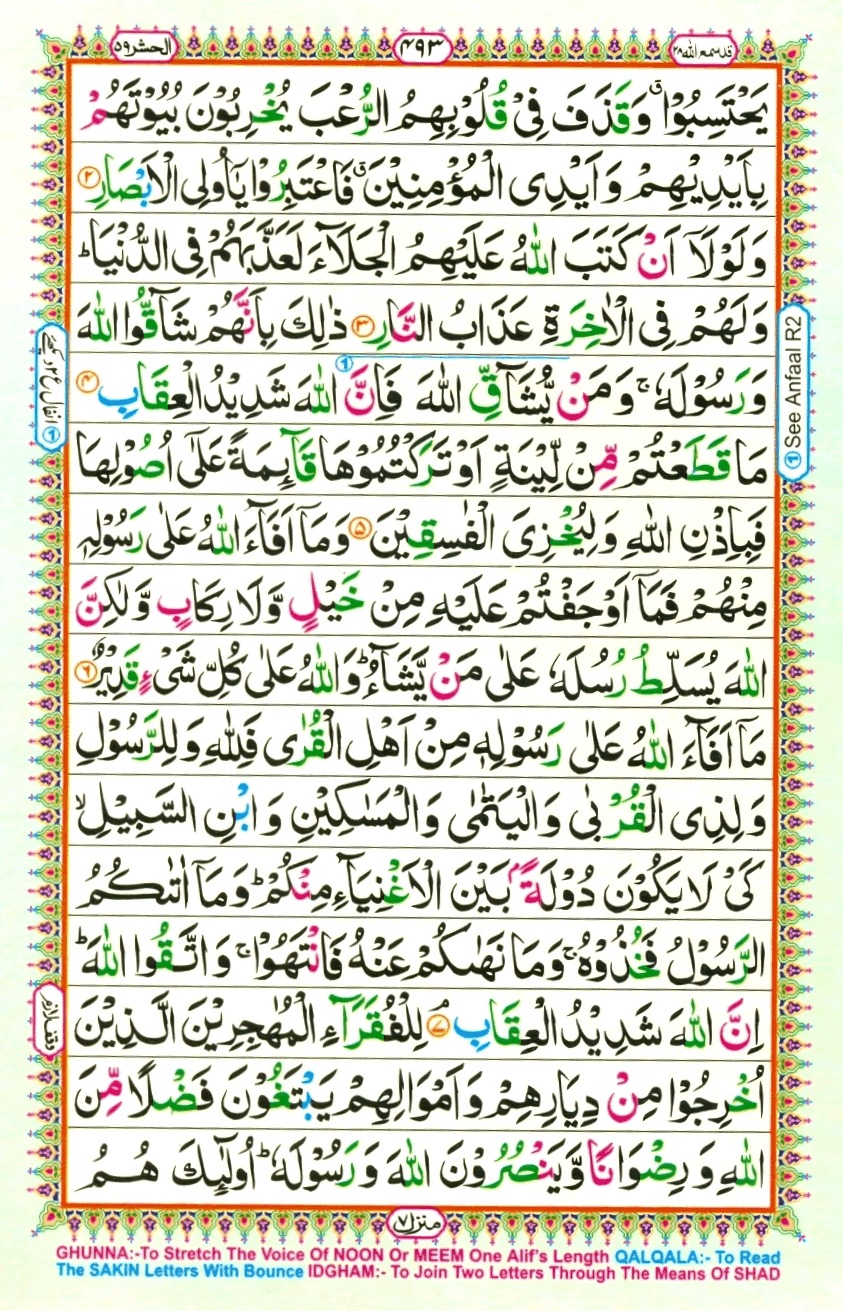 قد سمع الله ۲۸
۴۹۳
الحشر ۵۹
يَحْتَسِبُوْا ۗ وَقَذَفَ فِىْ قُلُوْبِهِمُ الرُّعْبَ يُخْرِبُوْنَ بُيُوْتَهُمْ
بِاَيْدِيْهِمْ وَاَيْدِى الْمُؤْمِنِيْنَ ۗ فَاعْتَبِرُوْا يٰۤاُولِى الْاَبْصَارِ ﴿۲﴾
وَلَوْلَاۤ اَنْ كَتَبَ اللّٰهُ عَلَيْهِمُ الْجَلَاۤءَ لَعَذَّبَهُمْ فِى الدُّنْيَا ؕ
وَلَهُمْ فِى الْاٰخِرَةِ عَذَابُ النَّارِ ﴿۳﴾ ذٰلِكَ بِاَنَّهُمْ شَآقُّوا اللّٰهَ
وَرَسُوْلَهٗ ۚ وَمَنْ يُّشَآقِّ اللّٰهَ فَاِنَّ اللّٰهَ شَدِيْدُ الْعِقَابِ ﴿۴﴾
مَا قَطَعْتُمْ مِّنْ لِّيْنَةٍ اَوْ تَرَكْتُمُوْهَا قَآئِمَةً عَلٰٓى اُصُوْلِهَا
فَبِاِذْنِ اللّٰهِ وَلِيُخْزِىَ الْفٰسِقِيْنَ ﴿۵﴾ وَمَاۤ اَفَآءَ اللّٰهُ عَلٰى رَسُوْلِهٖ
مِنْهُمْ فَمَاۤ اَوْجَفْتُمْ عَلَيْهِ مِنْ خَيْلٍ وَّلَا رِكَابٍ وَّلٰكِنَّ
اللّٰهَ يُسَلِّطُ رُسُلَهٗ عَلٰى مَنْ يَّشَآءُ ؕ وَاللّٰهُ عَلٰى كُلِّ شَىْءٍ قَدِيْرٌ ﴿۶﴾
مَاۤ اَفَآءَ اللّٰهُ عَلٰى رَسُوْلِهٖ مِنْ اَهْلِ الْقُرٰى فَلِلّٰهِ وَلِلرَّسُوْلِ
وَلِذِى الْقُرْبٰى وَالْيَتٰمٰى وَالْمَسٰكِيْنِ وَابْنِ السَّبِيْلِ ۙ
كَىْ لَا يَكُوْنَ دُوْلَةً ۢ بَيْنَ الْاَغْنِيَآءِ مِنْكُمْ ؕ وَمَاۤ اٰتٰىكُمُ
الرَّسُوْلُ فَخُذُوْهُ ۚ وَمَا نَهٰىكُمْ عَنْهُ فَانْتَهُوْا ۚ وَاتَّقُوا اللّٰهَ ؕ
اِنَّ اللّٰهَ شَدِيْدُ الْعِقَابِ ۘ﴿۷﴾ لِلْفُقَرَآءِ الْمُهٰجِرِيْنَ الَّذِيْنَ
اُخْرِجُوْا مِنْ دِيَارِهِمْ وَاَمْوَالِهِمْ يَبْتَغُوْنَ فَضْلًا مِّنَ
اللّٰهِ وَرِضْوَانًا وَّيَنْصُرُوْنَ اللّٰهَ وَرَسُوْلَهٗ ؕ اُولٰٓئِكَ هُمُ
① See Anfaal R2
① انفال ع ۲ دیکھئے
وقف لازم
منزل ۷
GHUNNA:-To Stretch The Voice Of NOON Or MEEM One Alif's Length QALQALA:- To Read
The SAKIN Letters With Bounce IDGHAM:- To Join Two Letters Through The Means Of SHAD